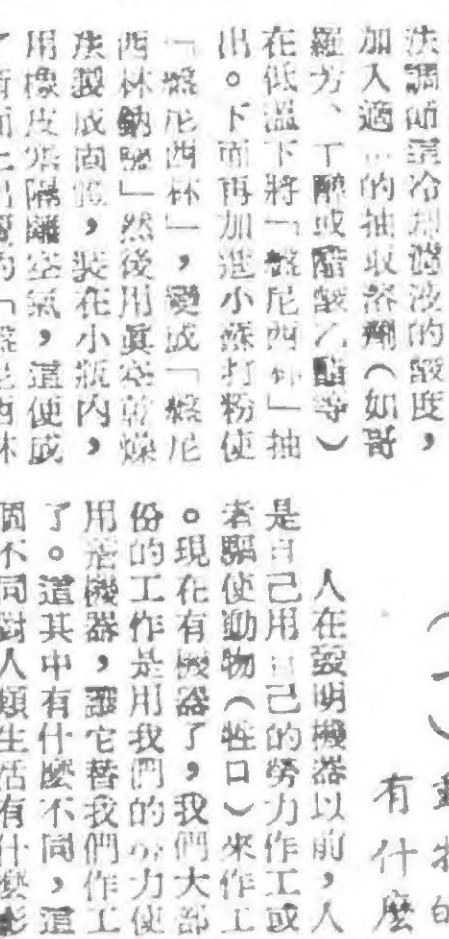 法調節這冷却濾液的酸度，
加入適的抽取溶劑（如哥
羅方、丁醇或醋酸乙酯等）
在低溫下將「盤尼西林」抽
出。下面再加進小蘇打粉使
「盤尼西林」，變成「盤尼
西林鈉鹽」然後用眞空乾燥
法製成固體，裝在小瓶內，
用橡皮塞隔離空氣，這便成
的「盤尼西林
（一）動物的
有什麼
人在發明機器以前，人
是自己用自己的勞力作工或
者驅使動物（牲口）來作工
。現在有機器了，我們大部
份的工作是用我們的勞力使
用着機器，讓它替我們作工
了。這其中有什麼不同，這
個不同對人類生活有什麼影